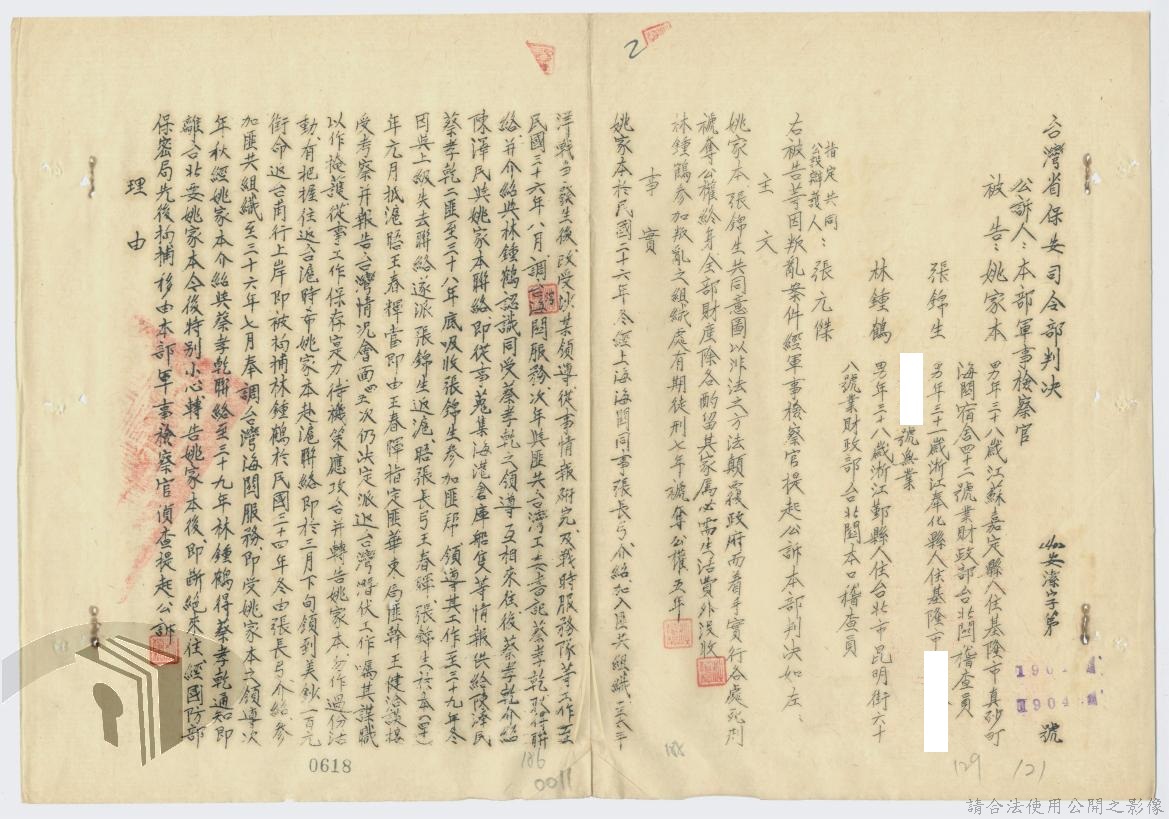 台灣省保安司令部判決
安潔字第
1904
1904
號
公訴人：本部軍事檢察官
被告：姚家本 男年三十八歲江蘇嘉定縣人住基隆市真砂町
海關宿舍四十二號業財政部台北關稽查員
張錦生 男年三十一歲浙江奉化縣人住基隆市
號漁業
林鍾鶴 男年三十八歲浙江鄞縣人住台北市昆明街六十
八號業財政部台北關本口稽查員
指定共同
公設辯護人：張元傑
右被告等因叛亂案件經軍事檢察官提起公訴本部判決如左：
主文
姚家本、張錦生共同意圖以非法之方法顛覆政府而着手實行各處死刑
褫奪公權終身全部財產除各酌留其家屬必需生活費外沒收
林鍾鶴參加叛亂之組織處有期徒刑七年褫奪公權五年
事實
姚家本於民國二十六年冬經上海海關同事張長弓介紹加入匪共組織
洋戰爭發生後改受沙某領導從事情報研究及戰時服務隊等工作
民國三十六年八月調台灣海關服務次年與匪共台灣工委書記蔡孝乾取得聯
絡并介紹與林鍾鶴認識同受蔡孝乾之領導互相來往後蔡孝乾介紹
陳澤民與姚家本聯絡即從事蒐集海港倉庫船隻等情報供給陳澤民
蔡孝乾二匪至三十八年底吸收張錦生參加匪幫領導其工作至三十九年冬
因與上級失去聯絡遂派張錦生返滬晤張長弓王春暉張錦生於本（四十）
年元月抵滬晤王春暉當即由王春暉指定匪華東局匪幹王健洽談接
受考察并報告台灣情況會面五次仍決定派返台灣潛伏工作囑其謀職
以作掩護從事工作保存實力待機策應攻台并轉告姚家本勿作過份活
動有把握住返台滬時希姚家本赴滬聯絡即於三月下旬領到美鈔一百元
銜命返台甫行上岸即被拘捕林鍾鶴於民國三十四年冬由張長弓介紹參
加匪共組織至三十六年七月奉調台灣海關服務即受姚家本之領導次
年秋經姚家本介紹與蔡孝乾聯絡至三十九年林鍾鶴得蔡孝乾通知即
離台北要姚家本今後特別小心轉告姚家本後即斷絕來往經國防部
保密局先後拘捕移由本部軍事檢察官偵查提起公訴
理由
0618
106
0011
108
129
121
請合法使用公開之影像